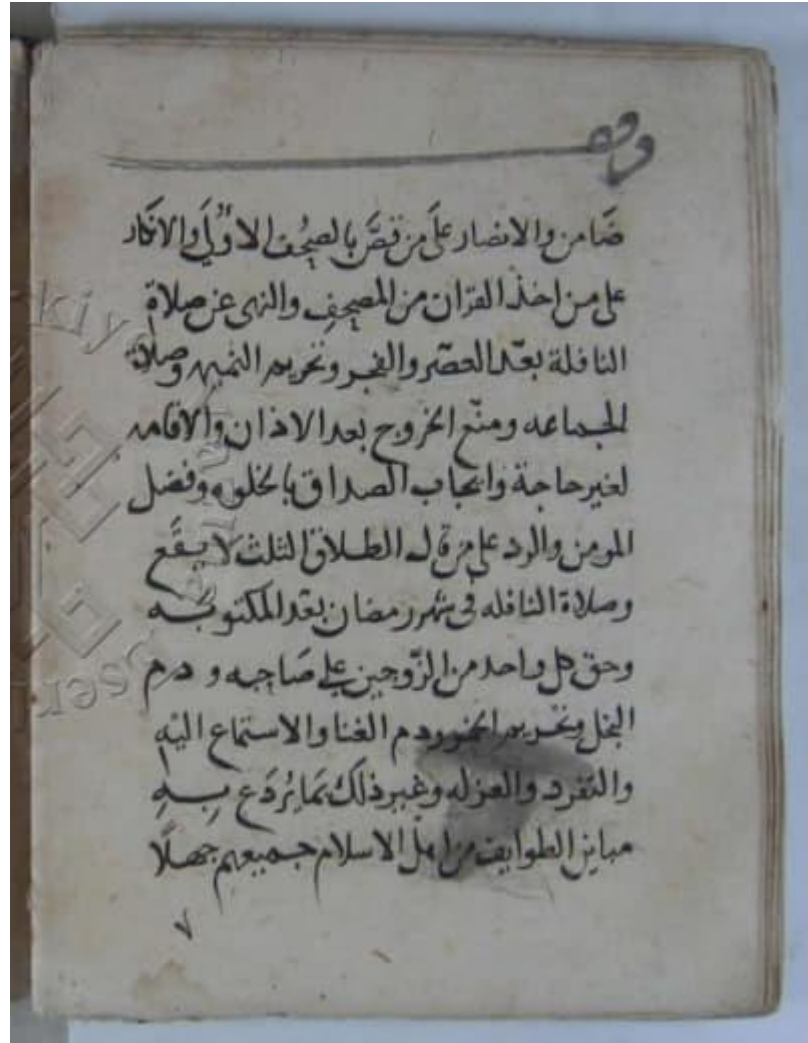 وقف
ضامن والانصار على من قصّ بالصحف الاوّلَي والانكار
على من اخذ القران من المصحف والنهى عن صلاة
النافلة بعد العصر والفجر وتحريم وصلاة
الجماعه ومنع الخروج بعد الاذان والاقامه
لغير حاجة وايجاب الصداق بالخلوه وفضل
المومن والرد على من قال الطلاق الثلث لا يقع
وصلاة النافله فى شهر رمضان بعد المكتوبه
وحق كل واحد من الزوجين على صاحبه و ذم
البخل وتحريم الخمر وذم الغنا والاستماع اليه
والتفرد والعزله وغير ذلك بما يُردَع بِـهِ
مباين الطوايف من اهل الاسلام جميعهم جهلًا
٧